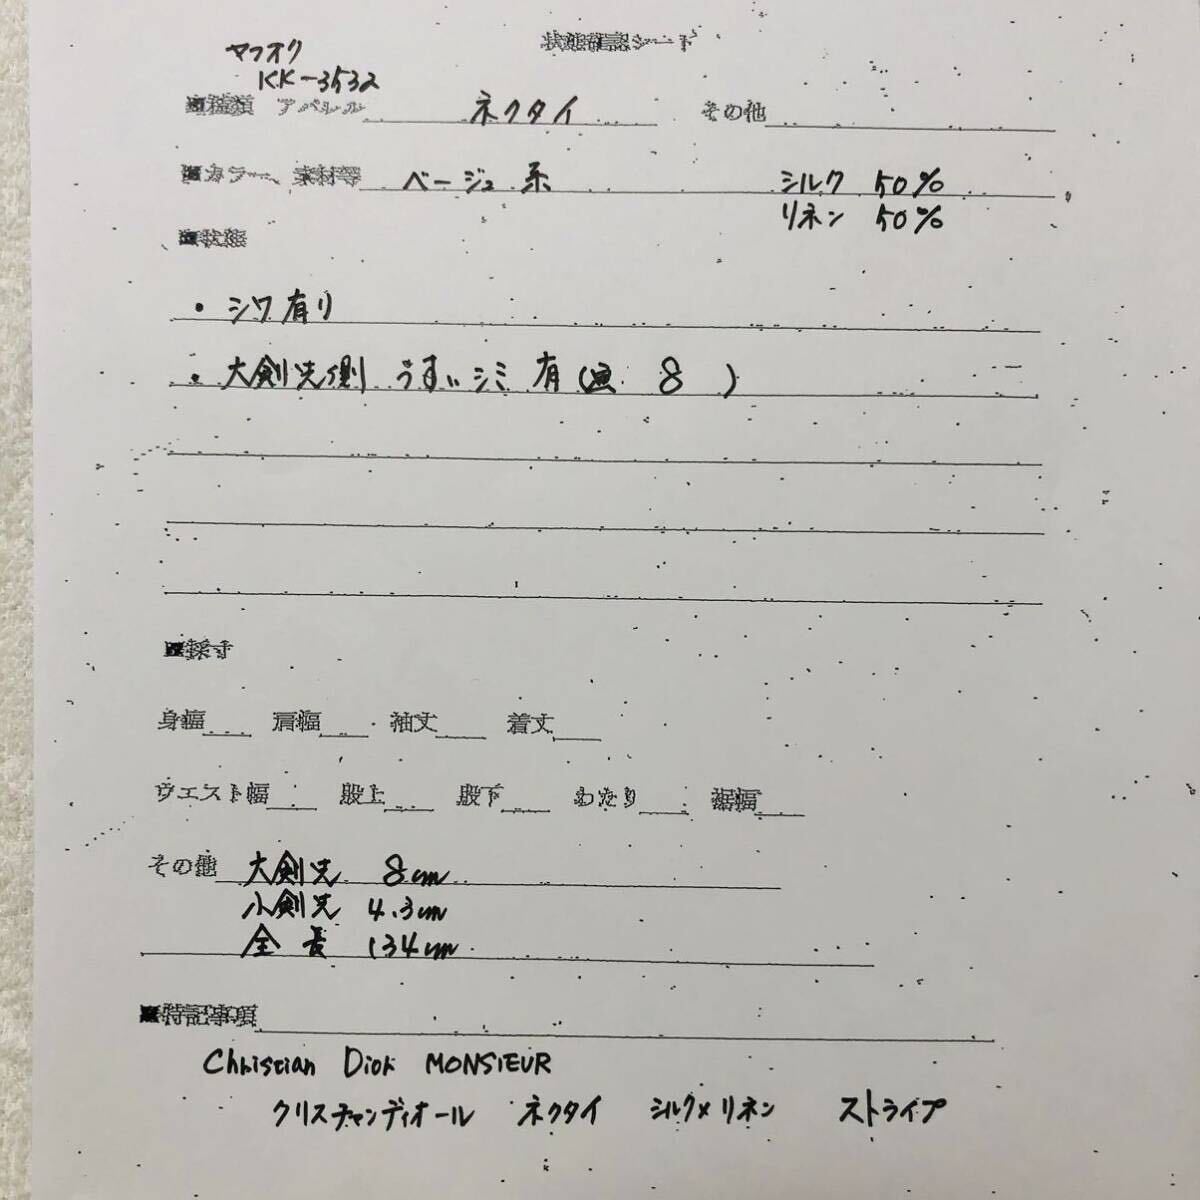 状態確認シート
ヤフオク
KK-3532
■種類 アパレル ネクタイ その他
■カラー、素材等 ベージュ系 シルク 50%
リネン 50%
■状態
・シワ有り
・大剣先側 うすいシミ有( 8 )
■採寸
身幅 肩幅 袖丈 着丈
ウエスト幅 股上 股下 わたり 裾幅
その他 大剣先 8cm
小剣先 4.3cm
全長 134cm
■特記事項
Christian Dior MONSIEUR
クリスチャンディオール ネクタイ シルク×リネン ストライプ